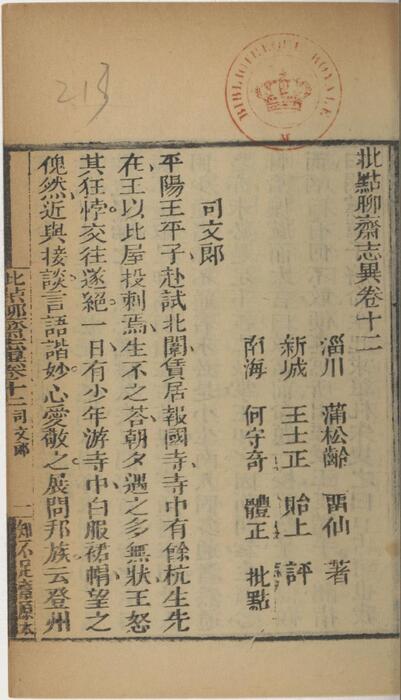 批點聊齋志異卷十二
淄川 蒲松齡 畱仙 著
新城 王士正 貽上 評
南海 何守奇 體正 批點
司文郎
平陽王平子赴試北闈賃居報國寺寺中有餘杭生先
在王以比屋投刺焉生不之荅朝夕遇之多無狀王怒
其狂悖交往遂絕一日有少年游寺中白服裙帽望之
傀然近與接談言語諧妙心愛敬之展問邦族云登州
批點聊齋志異卷十二 司文郎 一 知不足齋原本
213
BIBLIOTHEQUE ROYALE